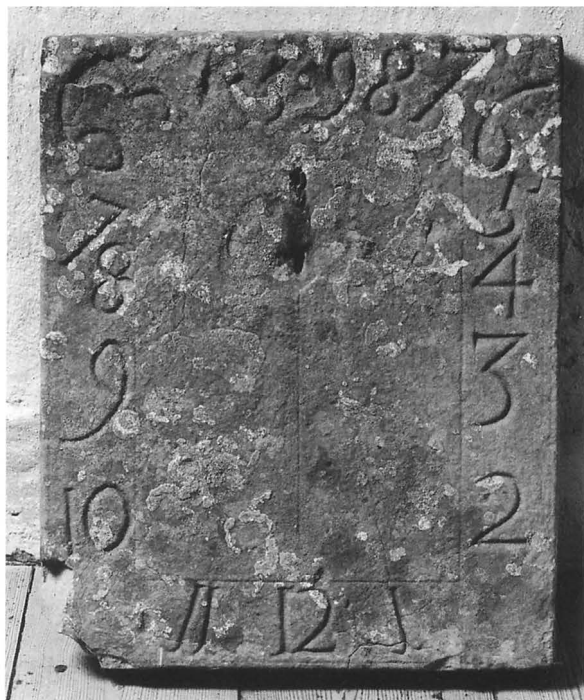 1598 7
5
6 6
7 5
8 4
9 3
10 2
11 12 1